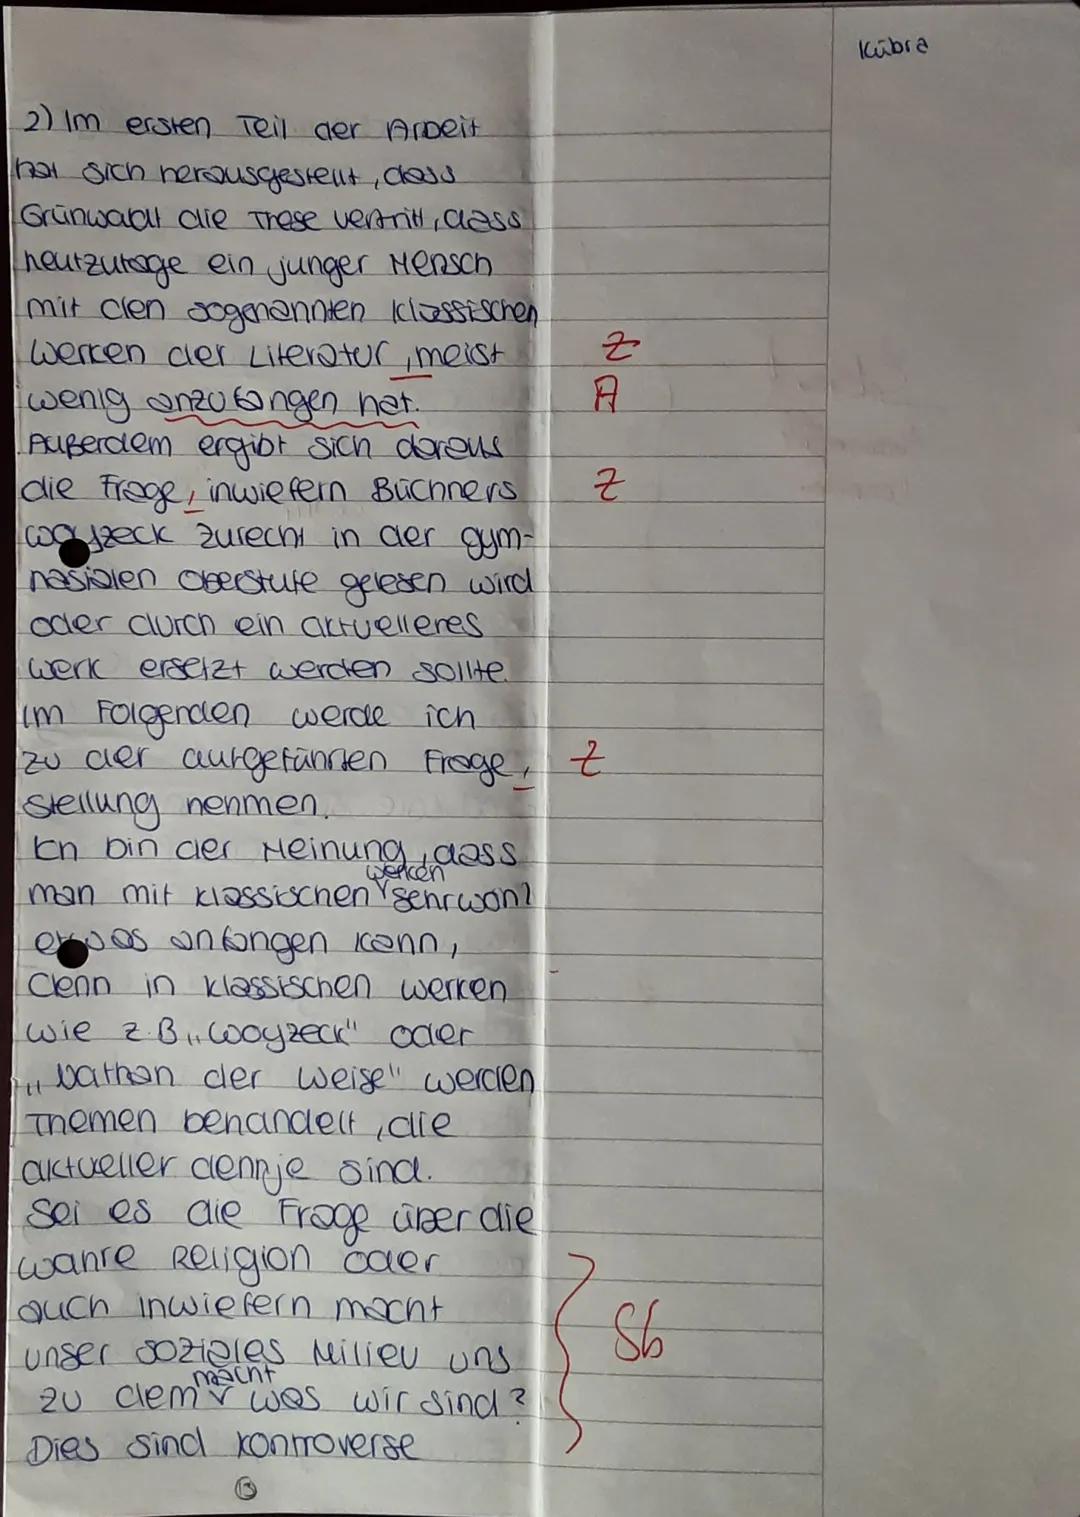 Kübra
2) Im ersten Teil der Arbeit
hat sich herausgestellt, dass
Grünwaldt die These vertritt, dass
heutzutage ein junger Mensch
mit den sogenannten klassischen
Werken der Literatur, meist
Z
wenig anzufangen hat.
A
Außerdem ergibt sich daraus
die Frage, inwiefern Büchners
Z
Woyzeck zurecht in der gym-
nasialen Oberstufe gelesen wird
oder durch ein aktuelleres
Werk ersetzt werden sollte.
Im Folgenden werde ich
zu der aufgeführten Frage,
Z
Stellung nehmen.
Ich bin der Meinung, dass
werken
man mit klassischen sehr wohl
etwas anfangen kann,
denn in klassischen Werken
wie z.B. „Woyzeck" oder
„Nathan der Weise" werden
Themen behandelt, die
aktueller denn je sind.
Sei es die Frage über die
wahre Religion oder
auch inwiefern macht
Sb
unser soziales Milieu uns
macht
zu dem was wir sind?
Dies sind kontroverse
13